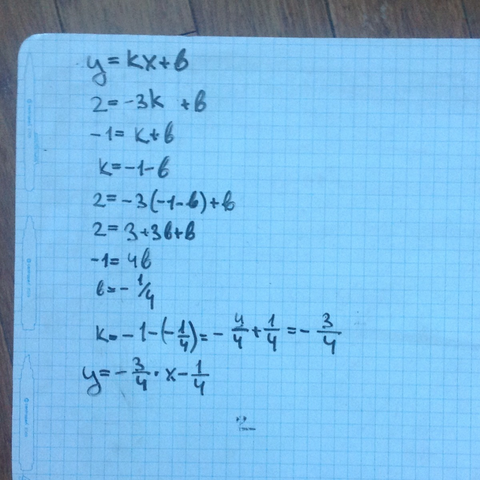 y = kx + b
2 = -3k + b
-1 = k + b
k = -1 - b
2 = -3(-1 - b) + b
2 = 3 + 3b + b
-1 = 4b
b = - 1/4
k = -1 - (-1/4) = - 4/4 + 1/4 = - 3/4
y = - 3/4 · x - 1/4